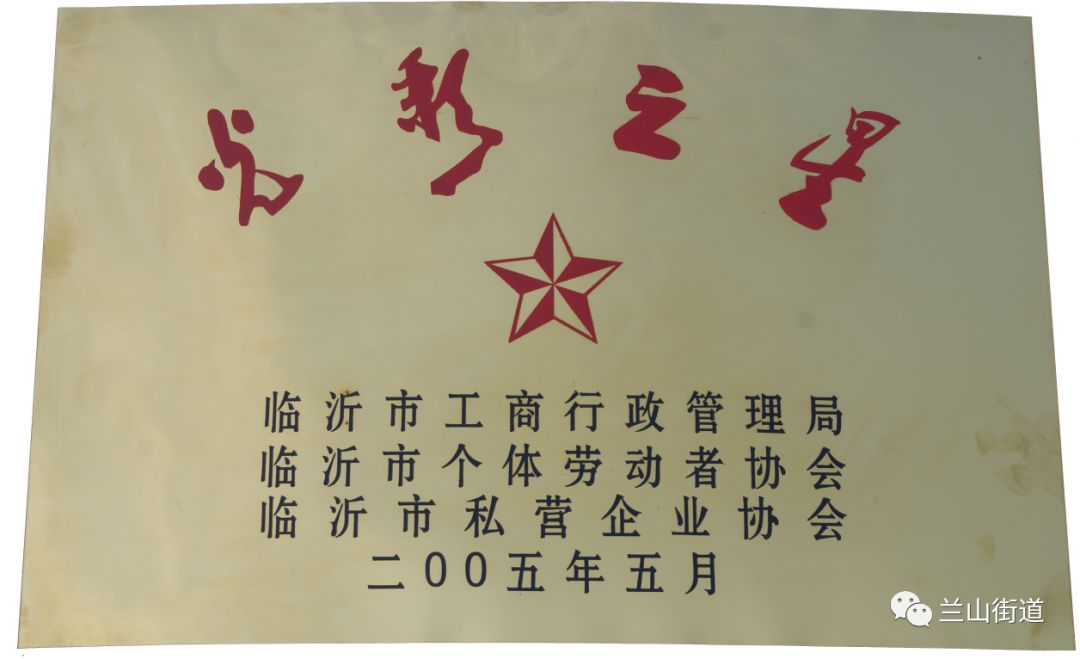 光彩之星
临沂市工商行政管理局
临沂市个体劳动者协会
临沂市私营企业协会
二00五年五月
兰山街道